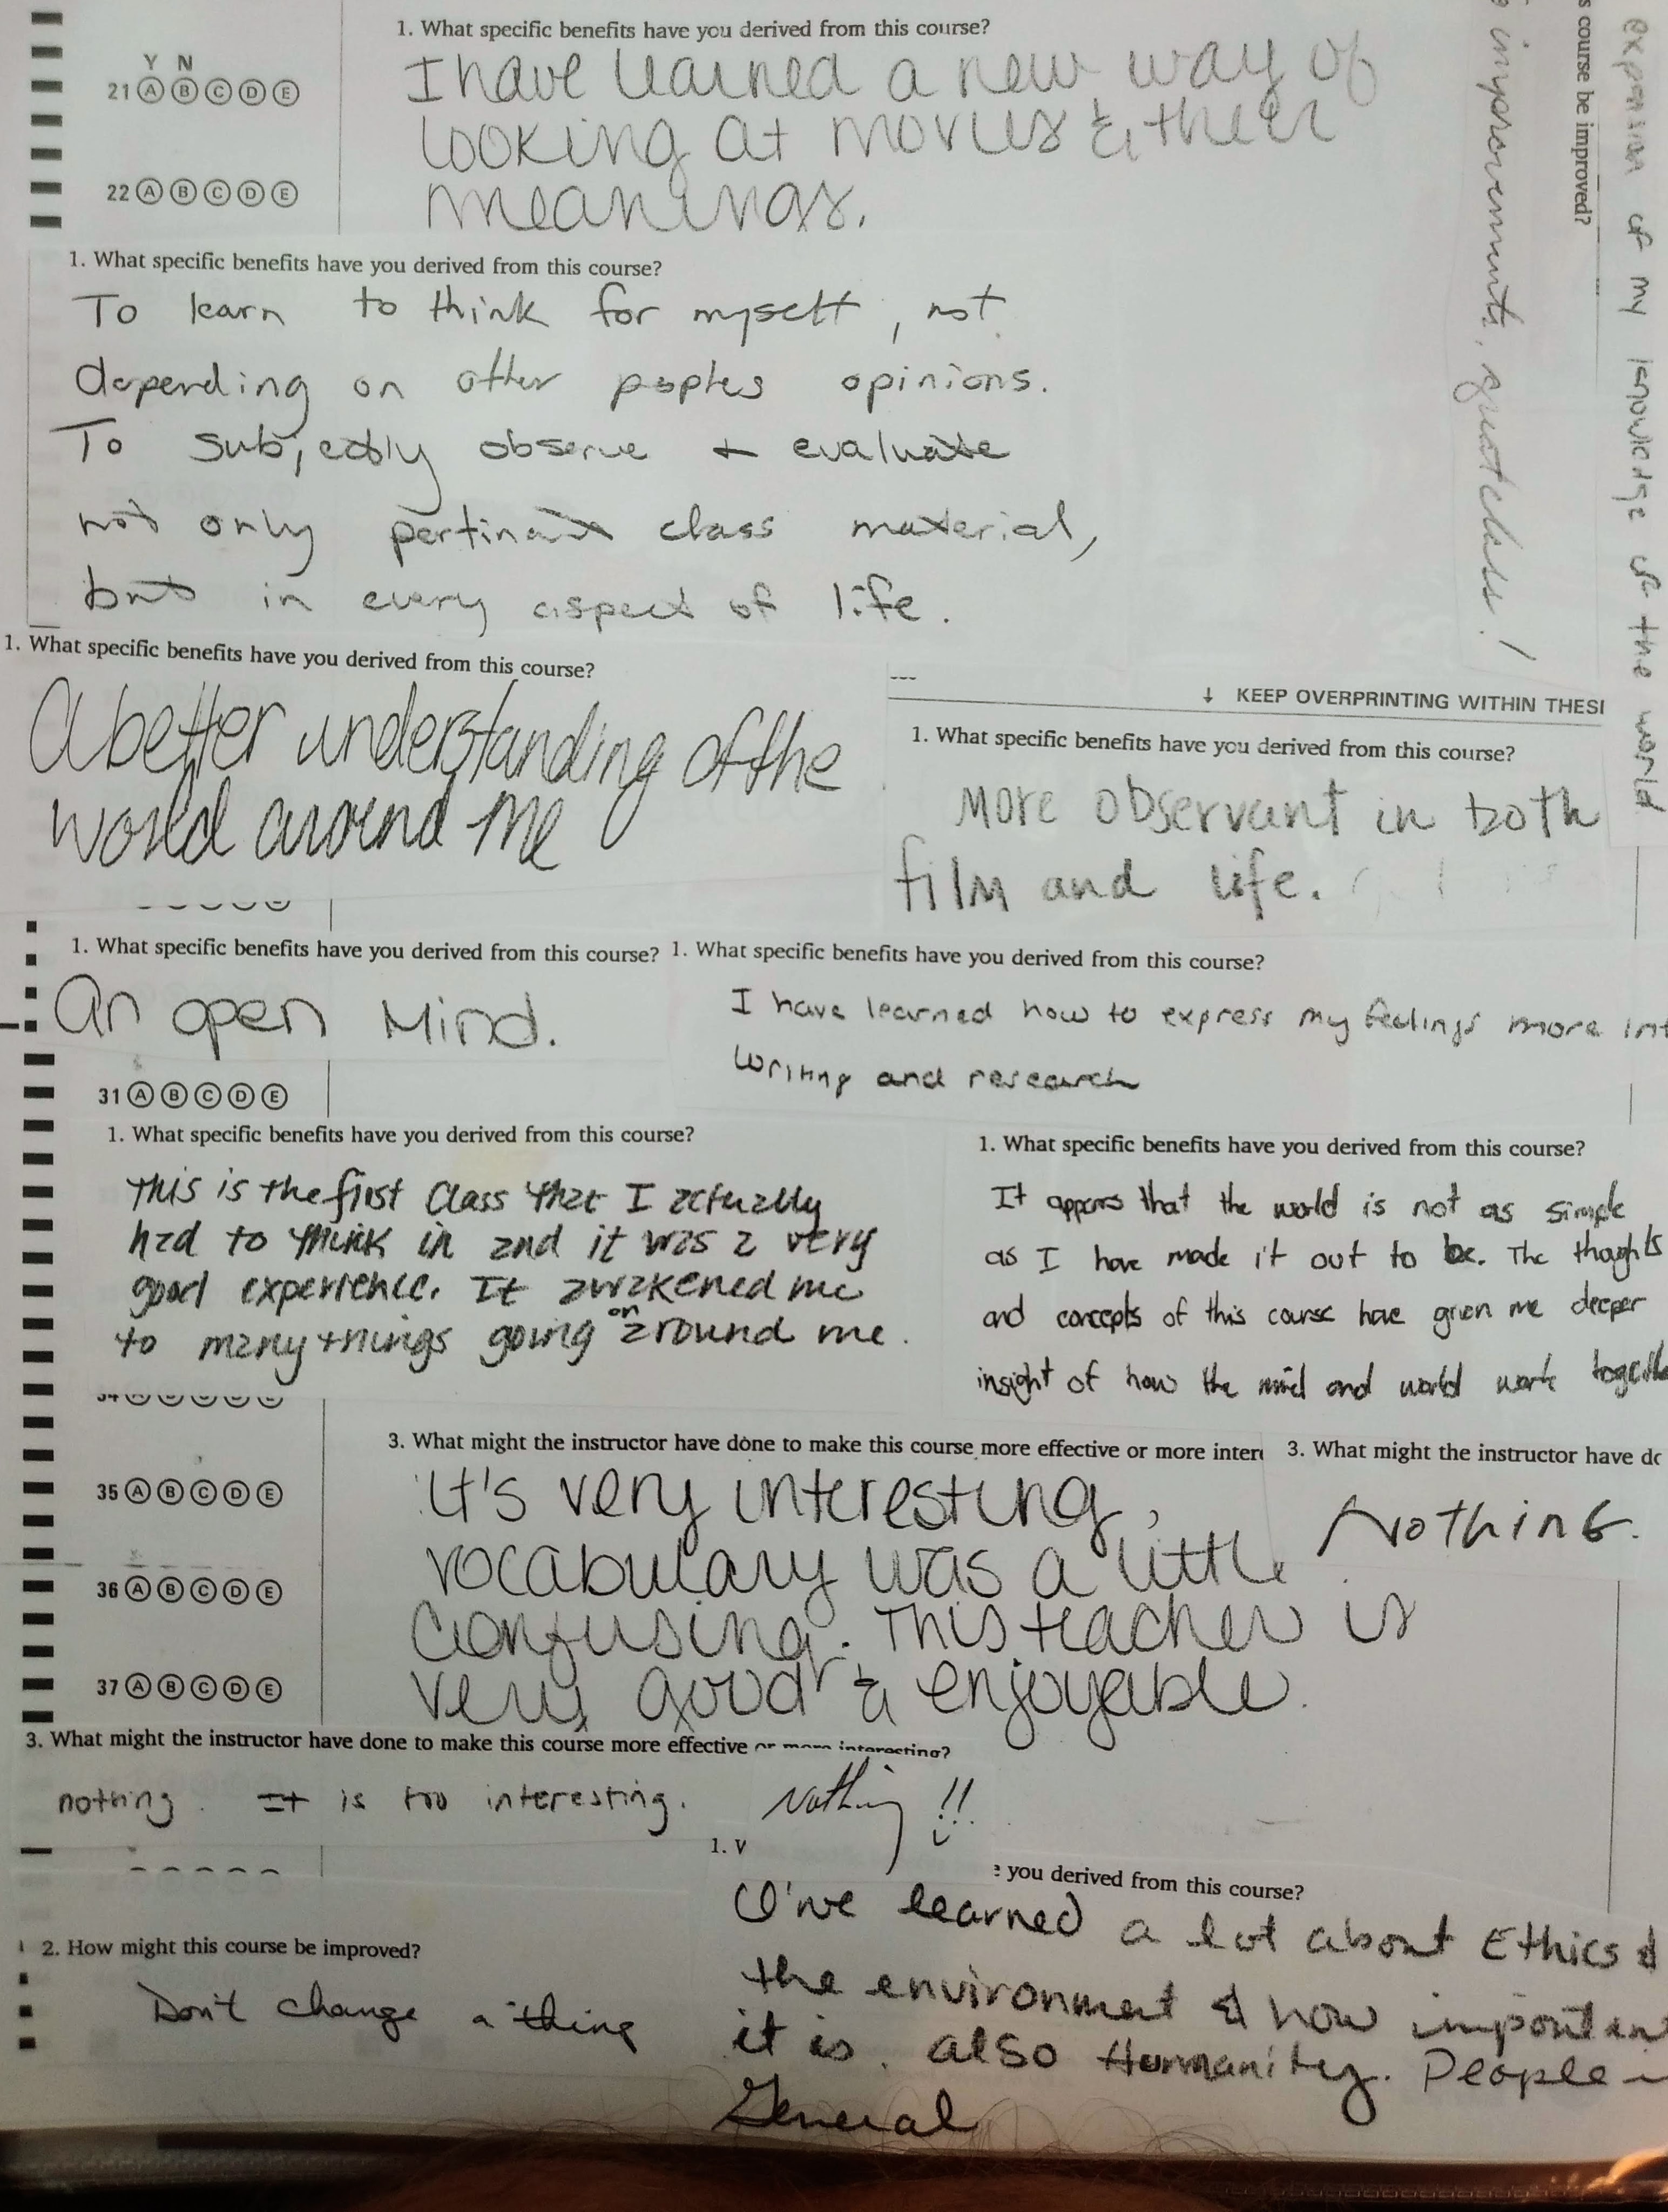 1. What specific benefits have you derived from this course?
Y N
21 A B C D E
I have learned a new way of
looking at movies & their
meanings.
22 A B C D E
s course be improved?
improvements, great class!
expansion of my knowledge of the world
1. What specific benefits have you derived from this course?
To learn to think for myself, not
depending on other peoples opinions.
To subjectly observe + evaluate
not only pertinant class material,
but in every aspect of life.
1. What specific benefits have you derived from this course?
A better understanding of the
world around me
↓ KEEP OVERPRINTING WITHIN THESE
1. What specific benefits have you derived from this course?
More observant in both
film and life.
1. What specific benefits have you derived from this course?
An open Mind.
1. What specific benefits have you derived from this course?
I have learned how to express my feelings more int
writing and research
31 A B C D E
1. What specific benefits have you derived from this course?
This is the first class that I actually
had to think in and it was a very
good experience. It awakened me
to many things going on around me.
1. What specific benefits have you derived from this course?
It appears that the world is not as simple
as I have made it out to be. The thoughts
and concepts of this course have given me deeper
insight of how the mind and world work together
34 A B C D E
3. What might the instructor have done to make this course more effective or more inter
35 A B C D E
It's very interesting,
vocabulary was a little
36 A B C D E
confusing. This teacher is
very good & enjoyable.
37 A B C D E
3. What might the instructor have do
Nothing.
3. What might the instructor have done to make this course more effective or more interesting?
nothing. It is too interesting.
Nothing!!
1. V
e you derived from this course?
I've learned a lot about Ethics &
the environment & how importan
it is. also Humanity. People
General
2. How might this course be improved?
Don't change a thing